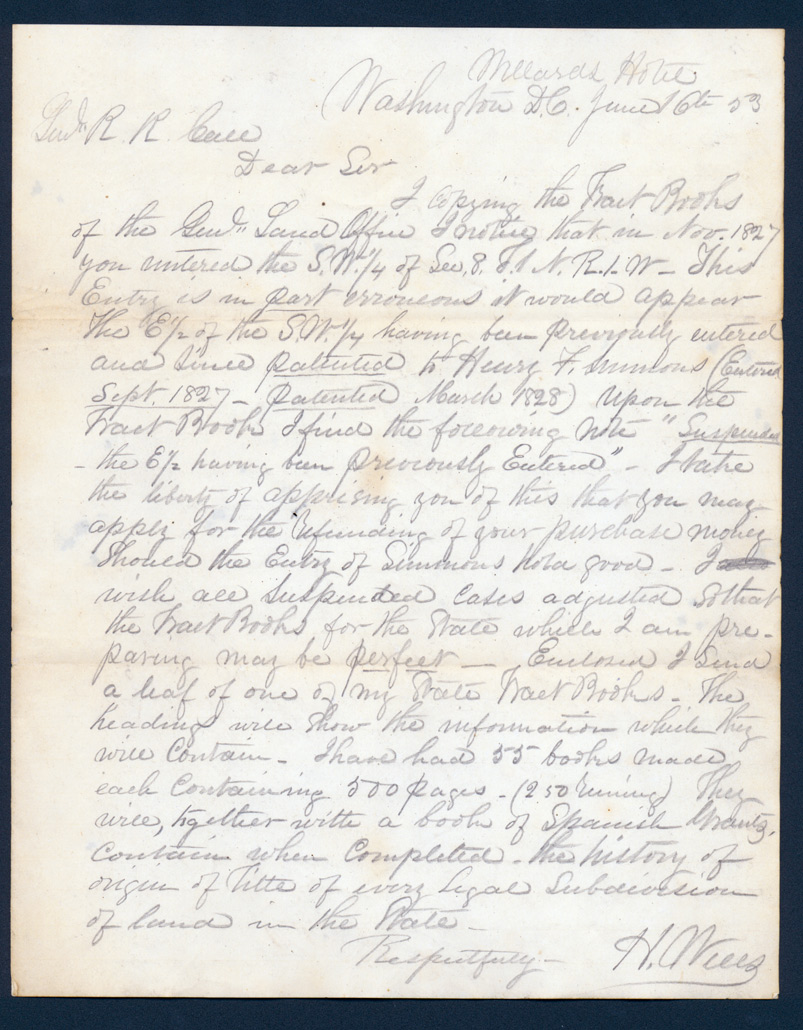 Willards Hotel
Washington D.C. June 16th 53
Genl. R. K. Call
Dear Sir
I copying the Tract Books
of the Genl. Land Office I notice that in Nov. 1827
you entered the S.W. 1/4 of Sec. 8. T. 1 N. R. 1. W - This
Entry is in part erroneous it would appear
the E 1/2 of the S.W. 1/4 having been previously entered
and since patented to Henry F. Simmons (Entered
Sept. 1827 - patented March 1828) Upon the
Tract Book I find the following note "Suspended
- the E 1/2 having been previously Entered" - I take
the liberty of apprising you of this that you may
apply for the refunding of your purchase money
Should the Entry of Simmons hold good - I
wish all Suspended Cases adjusted so that
the Tract Books for the State which I am pre-
paring may be perfect - Enclosed I send
a leaf of one of my State Tract Books - The
heading will show the information which they
will contain - I have had 55 books made,
each containing 500 pages - (250 running) They
will, together with a book of Spanish Grants,
contain when completed - the history of
origin of title of every legal Subdivision
of land in the State -
Respectfully - H. Wells